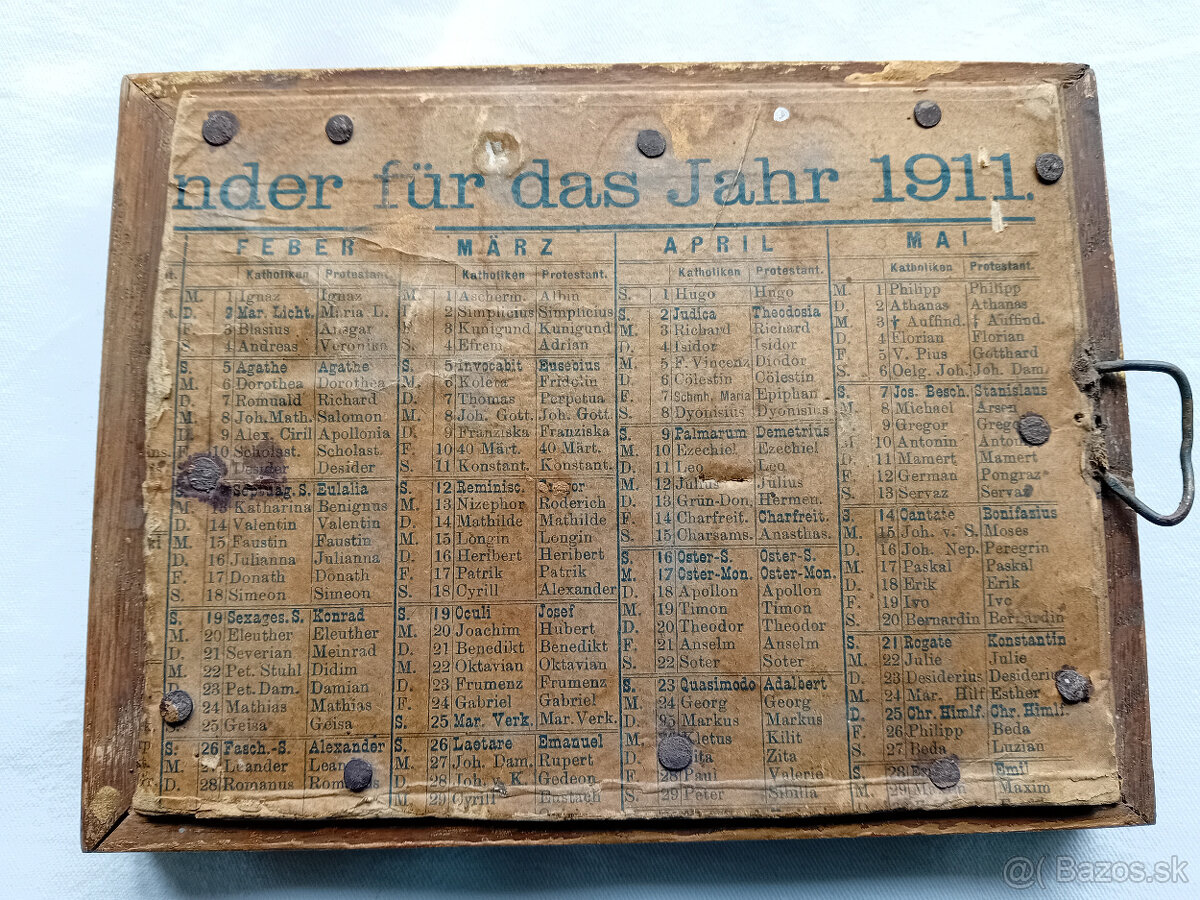 nder für das Jahr 1911.
FEBER MÄRZ APRIL MAI
Katholiken Protestant. Katholiken Protestant. Katholiken Protestant. Katholiken Protestant.
M. 1 Ignaz Ignaz M. 1 Ascherm. Albin S. 1 Hugo Hugo M. 1 Philipp Philipp
D. 2 Mar. Licht. Maria L. 2 Simplicius Simplicius S. 2 Judica Theodosia D. 2 Athanas Athanas
F. 3 Blasius Ansgar 3 Kunigund Kunigund M. 3 Richard Richard M. 3 † Auffind. † Auffind.
S. 4 Andreas Veronina 4 Efrem Adrian D. 4 Isidor Isidor D. 4 Florian Florian
S. 5 Agathe Agathe S. 5 invocabit Eusebius M. 5 F. Vincenz Diodor F. 5 V. Pius Gotthard
M. 6 Dorothea Dorothea M. 6 Koleta Fridolin D. 6 Cölestin Cölestin S. 6 Oelg. Joh. Joh. Dam.
D. 7 Romuald Richard D. 7 Thomas Perpetua F. 7 Schmh. Maria Epiphan S. 7 Jos. Besch. Stanislaus
M. 8 Joh. Math. Salomon M. 8 Joh. Gott. Joh. Gott. S. 8 Dyonisius Dyonisius M. 8 Michael Arsen
D. 9 Alex. Ciril Apollonia D. 9 Franziska Franziska S. 9 Palmarum Demetrius 9 Gregor
F. 10 Scholast. Scholast. F. 10 40 Märt. 40 Märt. M. 10 Ezechiel Ezechiel 10 Antonin
Desider Desider S. 11 Konstant. Konstant. D. 11 Leo Leo D. 11 Mamert Mamert
S. Septuag. S. Eulalia S. 12 Reminisc. M. 12 Julius Julius F. 12 German Pongraz
M. 13 Katharina Benignus M. 13 Nizephor Roderich D. 13 Grün-Don. Hermen. S. 13 Servaz Servaz
D. 14 Valentin Valentin D. 14 Mathilde Mathilde F. 14 Charfreit. Charfreit. S. 14 Cantate Bonifazius
M. 15 Faustin Faustin M. 15 Longin Longin S. 15 Charsams. Anasthas. M. 15 Joh. v. S. Moses
D. 16 Julianna Julianna D. 16 Heribert Heribert S. 16 Oster-S. Oster-S. D. 16 Joh. Nep. Peregrin
F. 17 Donath Donath F. 17 Patrik Patrik M. 17 Oster-Mon. Oster-Mon. M. 17 Paskal Paskal
S. 18 Simeon Simeon S. 18 Cyrill Alexander D. 18 Apollon Apollon D. 18 Erik Erik
S. 19 Sexages. S. Konrad S. 19 Oculi Josef M. 19 Timon Timon F. 19 Ivo Ivo
M. 20 Eleuther Eleuther M. 20 Joachim Hubert D. 20 Theodor Theodor S. 20 Bernardin Bernardin
D. 21 Severian Meinrad D. 21 Benedikt Benedikt F. 21 Anselm Anselm S. 21 Rogate Konstantin
M. 22 Pet. Stuhl Didim M. 22 Oktavian Oktavian S. 22 Soter Soter M. 22 Julie Julie
D. 23 Pet. Dam. Damian D. 23 Frumenz Frumenz S. 23 Quasimodo Adalbert D. 23 Desiderius Desiderius
24 Mathias Mathias F. 24 Gabriel Gabriel M. 24 Georg Georg M. 24 Mar. Hilf Esther
S. 25 Geisa Geisa S. 25 Mar. Verk. Mar. Verk. D. 25 Markus Markus D. 25 Chr. Himlf. Chr. Himlf.
S. 26 Fasch.-S. Alexander S. 26 Laetare Emanuel M. Kletus Kilit F. 26 Philipp Beda
M. Leander M. 27 Joh. Dam. Rupert D. Zita S. 27 Beda Luzian
D. 28 Romanus D. 28 Joh. v. K. Gedeon F. 28 Paul Valerie S. 28 Emil
M. 29 Cyrill Eustach S. 29 Peter Sibilla M. 29 Maxim
Bazos.sk